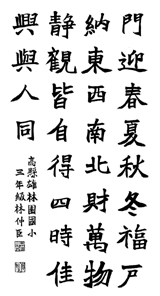 門迎春夏秋冬福戶
納東西南北財萬物
靜觀皆自得四時佳
興與人同
高縣雄林園國小
三年級林仟臣